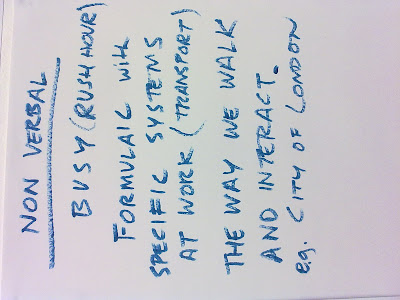 NON VERBAL
BUSY (RUSH HOUR)
FORMULAIC with
SPECIFIC SYSTEMS
AT WORK (TRANSPORT)
THE WAY WE WALK
AND INTERACT.
e.g. CITY OF LONDON